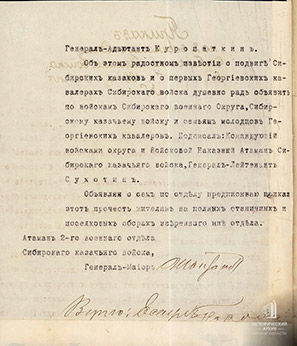 Генералъ-Адъютантъ Куропаткинъ.
Объ этомъ радостномъ извѣстіи о подвигѣ Си-
бирскихъ казаковъ и о первыхъ Георгіевскихъ ка-
валерахъ Сибирского войска душевно радъ объявить
по войскамъ Сибирского Военнаго Округа, Сибир-
скому казачьему войску и семьямъ молодцовъ Ге-
оргіевскихъ кавалеровъ. Подписалъ: Командующій
войсками округа и Войсковой Наказной Атаманъ Си-
бирского казачьяго войска, Генералъ-Лейтенантъ
Сухотинъ.
Объявляя о семъ по отдѣлу предписываю приказъ
этотъ прочесть жителямъ на полныхъ станичныхъ и
поселковыхъ сборахъ ввѣреннаго мнѣ отдѣла.
Атаманъ 2-го военнаго отдѣла
Сибирского казачьяго войска,
Генералъ-Маіоръ
Вѣрно:
ИСТОРИЧЕСКИЙ
АРХИВ